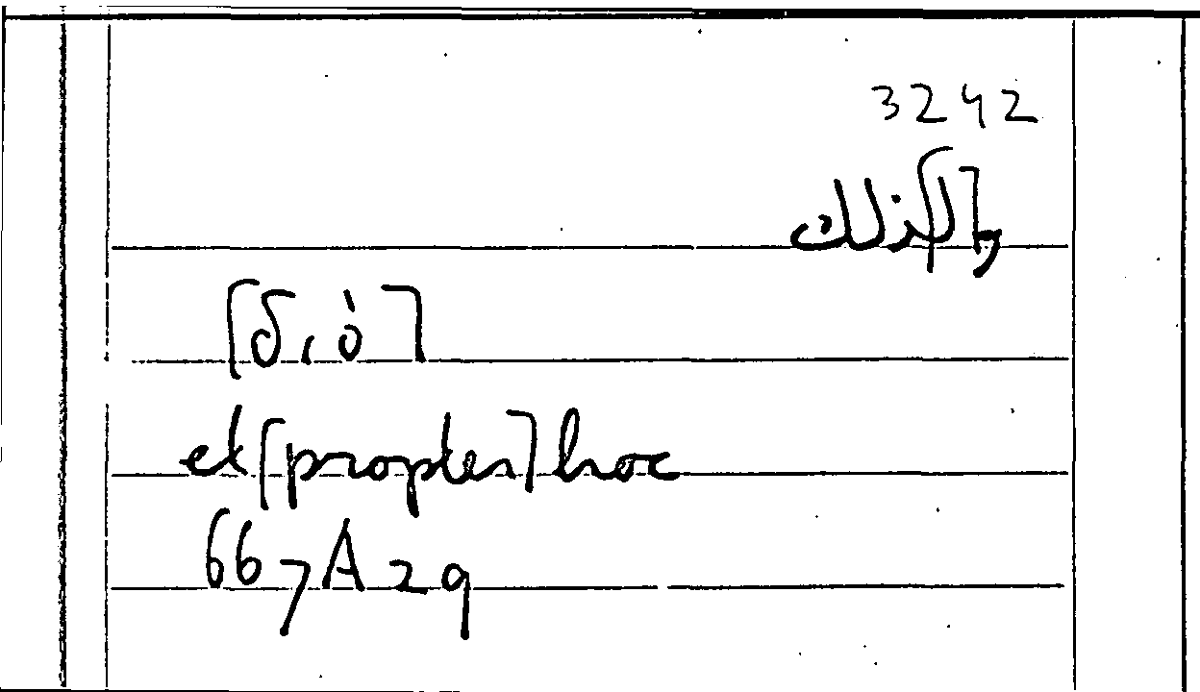 3242
و[ل]ذلك
[διὸ]
et [propter] hoc
667A29